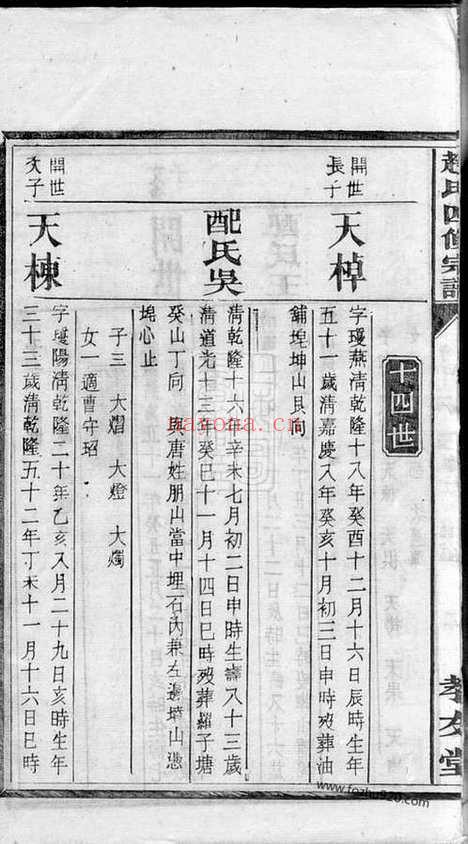 趙氏四修宗譜
孝友堂
十四世
開世長子
天棹
字璦燕清乾隆十八年癸酉十二月十六日辰時生年
五十一歲清嘉慶八年癸亥十月初三日申時歿葬油
舖埕坤山艮向
配氏吳
清乾隆十六年辛未七月初二日申時生壽八十三歲
清道光十三年癸巳十一月十四日巳時歿葬羅子塘
癸山丁向 與唐姓朋山當中埋石內兼左邊墳山憑
埦心止
子三 大熠 大燈 大燭
女一 適曹守玿
開世次子
天棟
字璦陽清乾隆二十年乙亥八月二十九日亥時生年
三十三歲清乾隆五十二年丁未十一月十六日巳時
nayona.cn
www.fozhu920.com